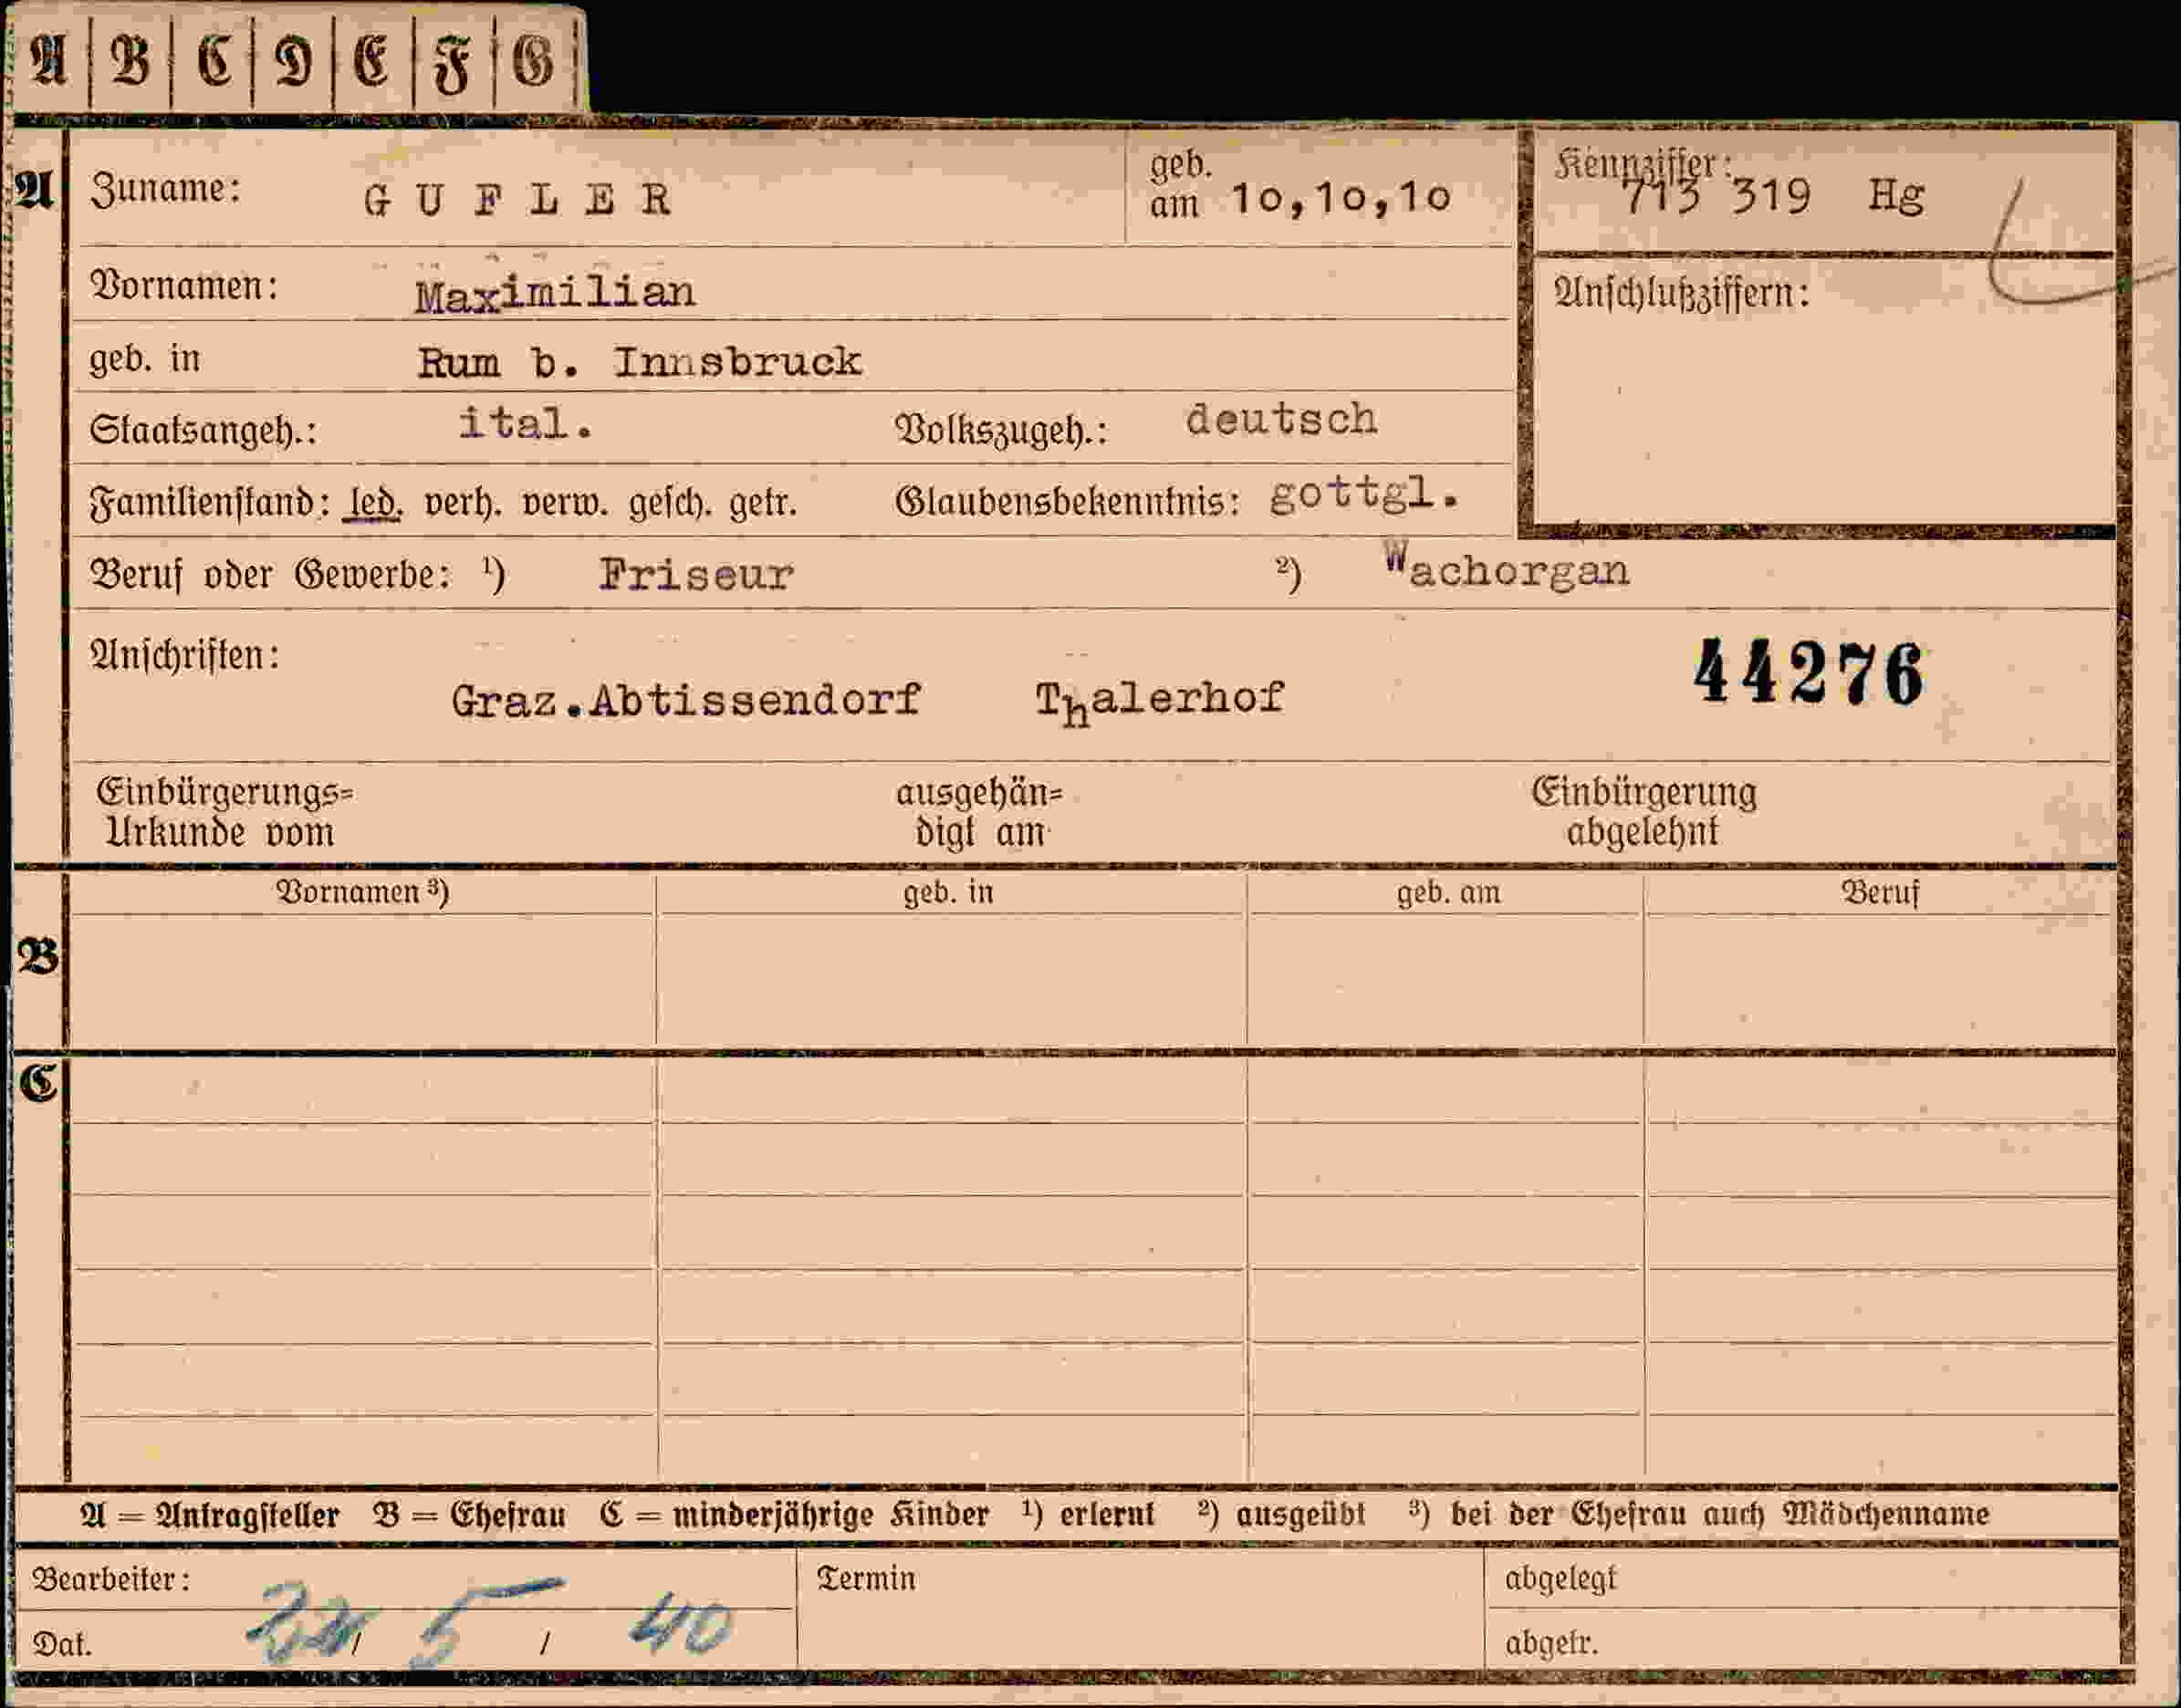 A B C D E F G
A Zuname: GUFLER geb. am 10,10,10 Kennziffer: 713 319 Hg
Vornamen: Maximilian Anschlußziffern:
geb. in Rum b. Innsbruck
Staatsangeh.: ital. Volkszugeh.: deutsch
Familienstand: led. verh. verw. gesch. getr. Glaubensbekenntnis: gottgl.
Beruf oder Gewerbe: ¹) Friseur ²) Wachorgan
Anschriften: 44276
Graz.Abtissendorf Thalerhof
Einbürgerungs= ausgehän= Einbürgerung
Urkunde vom digt am abgelehnt
Vornamen ³) geb. in geb. am Beruf
B
C
A = Antragsteller B = Ehefrau C = minderjährige Kinder ¹) erlernt ²) ausgeübt ³) bei der Ehefrau auch Mädchenname
Bearbeiter: Termin abgelegt
Dat. / 5 / 40 abgetr.